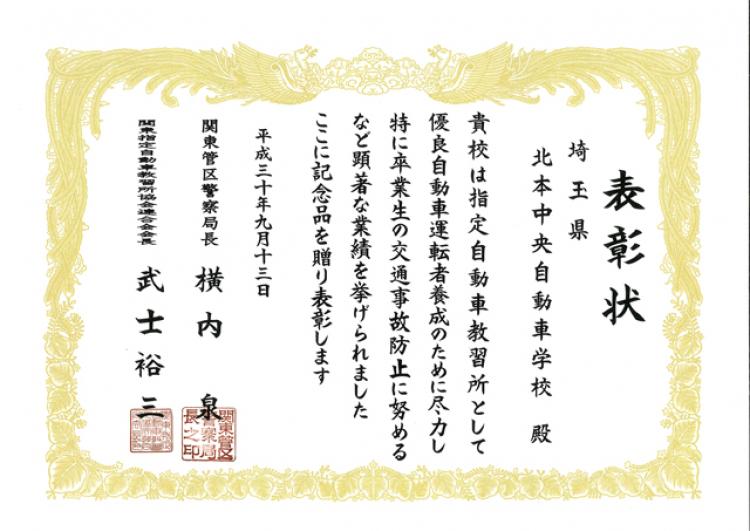 表彰状
埼玉県
北本中央自動車学校 殿
貴校は指定自動車教習所として
優良自動車運転者養成のために尽力し
特に卒業生の交通事故防止に努める
など顕著な業績を挙げられました
ここに記念品を贈り表彰します
平成三十年九月十三日
関東管区警察局長 横内 泉
関東管区
警察局
長之印
関東指定自動車教習所協会連合会会長 武士裕三